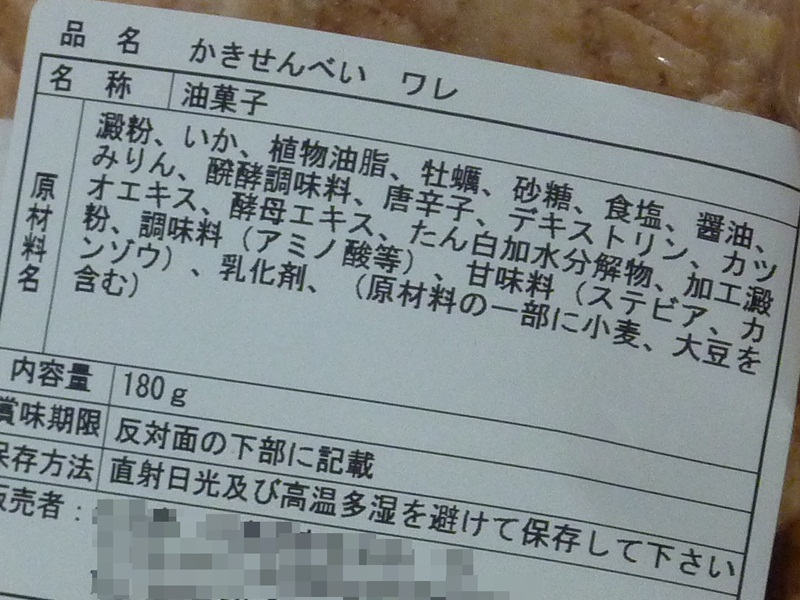 品名 かきせんべい ワレ
名称 油菓子
原材料名
澱粉、いか、植物油脂、牡蠣、砂糖、食塩、醤油、
みりん、醗酵調味料、唐辛子、デキストリン、カツ
オエキス、酵母エキス、たん白加水分解物、加工澱
粉、調味料（アミノ酸等）、甘味料（ステビア、カ
ンゾウ）、乳化剤、（原材料の一部に小麦、大豆を
含む）
内容量 180g
賞味期限 反対面の下部に記載
保存方法 直射日光及び高温多湿を避けて保存して下さい
販売者：